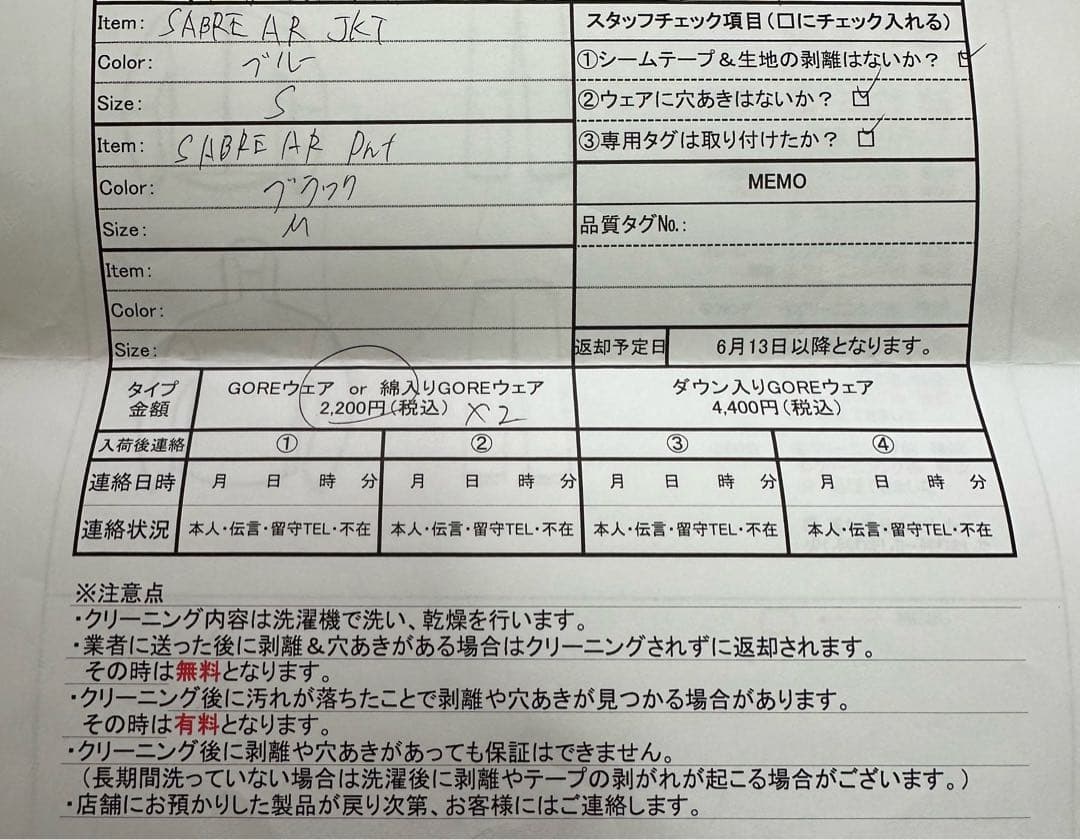 Item: SABRE AR JKT
Color: ブルー
Size: S
Item: SABRE AR Pnt
Color: ブラック
Size: M
Item:
Color:
Size:
スタッフチェック項目(□にチェック入れる)
①シームテープ&生地の剥離はないか?
②ウェアに穴あきはないか?
③専用タグは取り付けたか?
MEMO
品質タグNo.:
返却予定日 6月13日以降となります。
タイプ 金額
GOREウェア or 綿入りGOREウェア
2,200円(税込) ×2
ダウン入りGOREウェア
4,400円(税込)
入荷後連絡 ① ② ③ ④
連絡日時 月 日 時 分 月 日 時 分 月 日 時 分 月 日 時 分
連絡状況 本人・伝言・留守TEL・不在 本人・伝言・留守TEL・不在 本人・伝言・留守TEL・不在 本人・伝言・留守TEL・不在
※注意点
・クリーニング内容は洗濯機で洗い、乾燥を行います。
・業者に送った後に剥離&穴あきがある場合はクリーニングされずに返却されます。
その時は無料となります。
・クリーニング後に汚れが落ちたことで剥離や穴あきが見つかる場合があります。
その時は有料となります。
・クリーニング後に剥離や穴あきがあっても保証はできません。
(長期間洗っていない場合は洗濯後に剥離やテープの剥がれが起こる場合がございます。)
・店舗にお預かりした製品が戻り次第、お客様にはご連絡します。